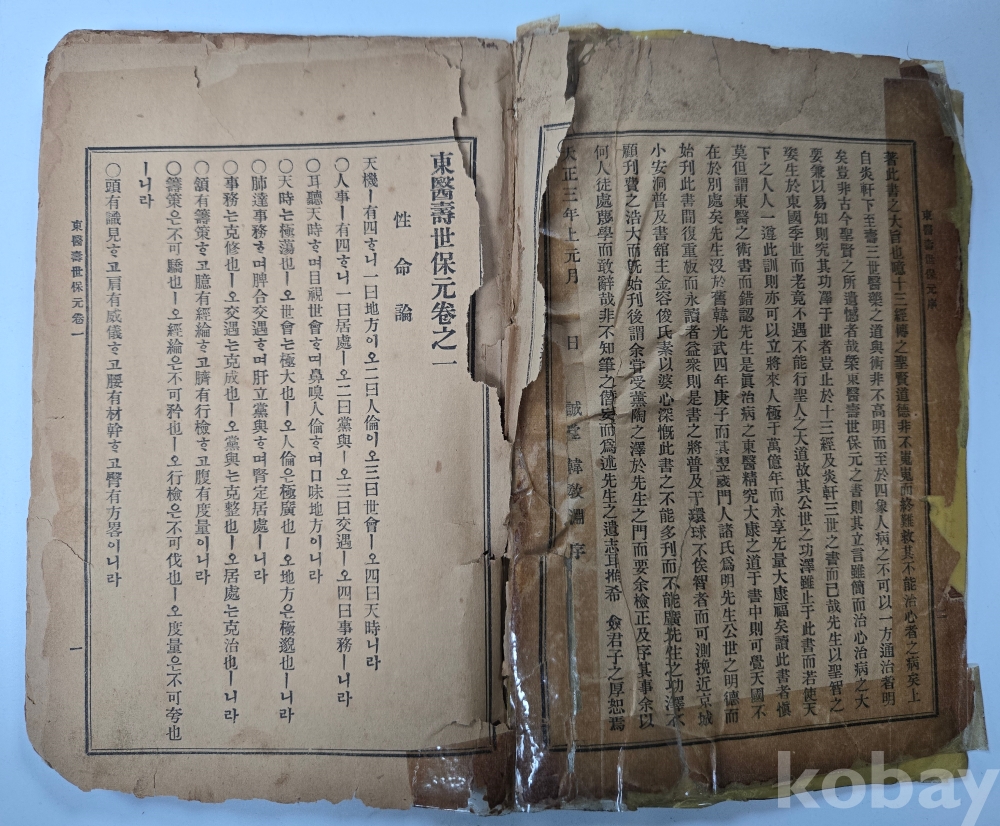 著此書之大旨也噫十三經傳之聖賢道德非不嵬嵬而終難救其不能治心者之病矣上
自炎軒下至壽三世醫藥之道與術非不高明而至於四象人病之不可以一方通治者明
矣豈非古今聖賢之所遺憾者哉槩東醫壽世保元之書則其立言雖簡而治心治病之大
要兼以易知則究其功溥于世者豈止於十三經及炎軒三世之書而已哉先生以聖智之
姿生於東國季世而老竟不遇不能行聖人之大道故其公世之功澤雖止于此書而若使天
下之人人一遵此訓則亦可以立將來人極千萬億年而永享无量大康福矣讀此書者愼
莫但謂東醫之術書而錯認先生是眞治病之東醫精究大康之道于書中則可覺天國不
在於別處矣先生沒於舊韓光武四年庚子而其翌歲門人諸氏爲明先生公世之明德而
始刊此書間復重板而永讀者益衆則是書之將普及于環球不俟智者而可測挽近京城
小安洞普及書舘主金容俊氏素以婆心深慨此書之不能多刊而不能廣先生之功澤不
顧刊費之浩大而旣始刊後謂余甞受薰陶之澤於先生之門而要余檢正及序其事余以
何人徒處蔑學而敢辭哉非不知筆之僭妄而爲述先生之遺志耳推希 僉君子之厚恕焉
大正三年上元月 日 誠菴 韓敎淵 序
東醫壽世保元序
東醫壽世保元卷之一
性命論
天機ㅣ有四ᄒᆞ니一曰地方이오二曰人倫이오三曰世會ㅣ오四曰天時니라
○人事ㅣ有四ᄒᆞ니一曰居處ㅣ오二曰黨與ㅣ오三曰交遇ㅣ오四曰事務ㅣ니라
○耳聽天時ᄒᆞ며目視世會ᄒᆞ며鼻嗅人倫ᄒᆞ며口味地方이니라
○天時ᄂᆞᆫ極蕩也ㅣ오世會ᄂᆞᆫ極大也ㅣ오人倫은極廣也ㅣ오地方은極邈也ㅣ니라
○肺達事務ᄒᆞ며脾合交遇ᄒᆞ며肝立黨與ᄒᆞ며腎定居處ㅣ니라
○事務ᄂᆞᆫ克修也ㅣ오交遇ᄂᆞᆫ克成也ㅣ오黨與ᄂᆞᆫ克整也ㅣ오居處ᄂᆞᆫ克治也ㅣ니라
○頷有籌策ᄒᆞ고臆有經綸ᄒᆞ고臍有行檢ᄒᆞ고腹有度量이니라
○籌策은不可驕也ㅣ오經綸은不可矜也ㅣ오行檢은不可伐也ㅣ오度量은不可夸也
ㅣ니라
○頭有識見ᄒᆞ고肩有威儀ᄒᆞ고腰有材幹ᄒᆞ고臀有方畧이니라
東醫壽世保元卷一
一
kobay